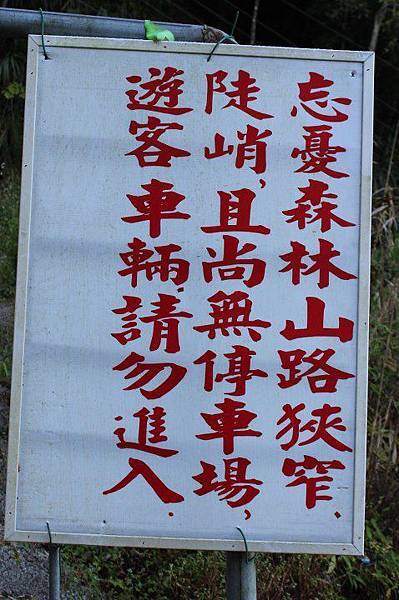 忘憂森林山路狹窄.
陡峭,且尚無停車場,
遊客車輛.請勿進入.